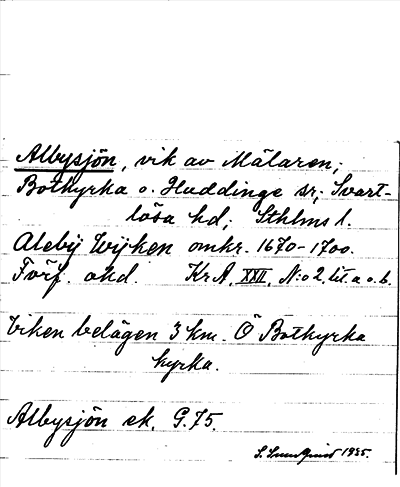 Albysjön, vik av Mälaren;
Botkyrka o. Huddinge sr; Svart-
lösa hd; Sthlms l.
Aleby Wijken omkr. 1670-1700.
Förf. okd. KrA, XXII, N:o 2, lit. a o. b.
Viken belägen 3 km. Ö Botkyrka
kyrka.
Albysjön ek. G.75.
S. 1935.